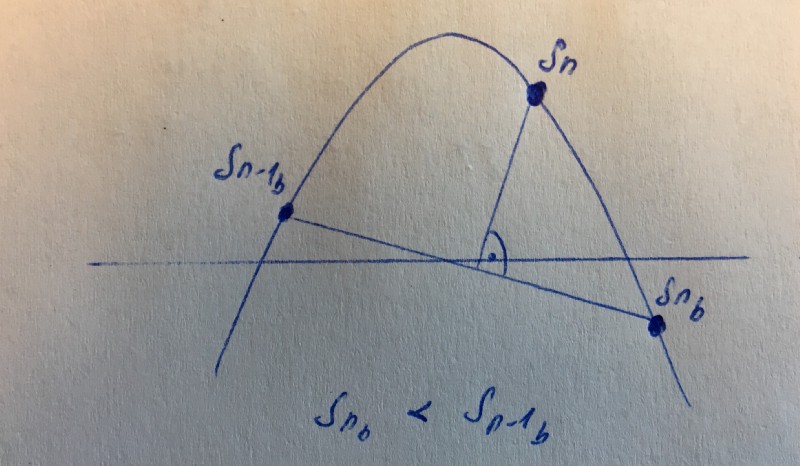 Sn
Sn-1b
Snb
Snb < Sn-1b